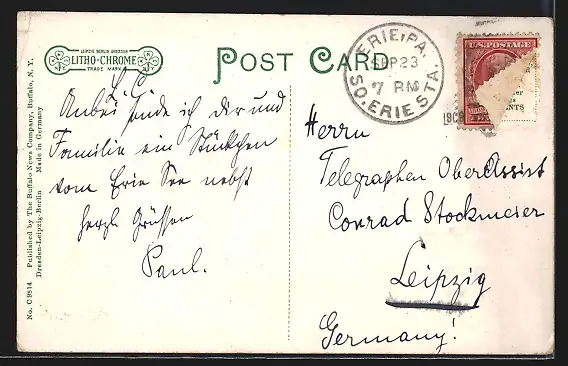 LEIPZIG BERLIN DRESDEN
LITHO-CHROME
TRADE MARK
N.Y.
POST CARD
ERIE, PA.
SEP 23
7 PM
SO. ERIE STA.
U.S. POSTAGE
L. C.
Anbei sende ich dir und
Familie ein Stückchen
vom Erie See nebst
herzl. Grüssen
Paul.
Herrn
Telegraphen Ober Assist
Conrad Stockmeier
Leipzig
Germany!
No. C 9814 Published by The Buffalo News Company, Buffalo, N. Y.
Dresden-Leipzig-Berlin Made in Germany